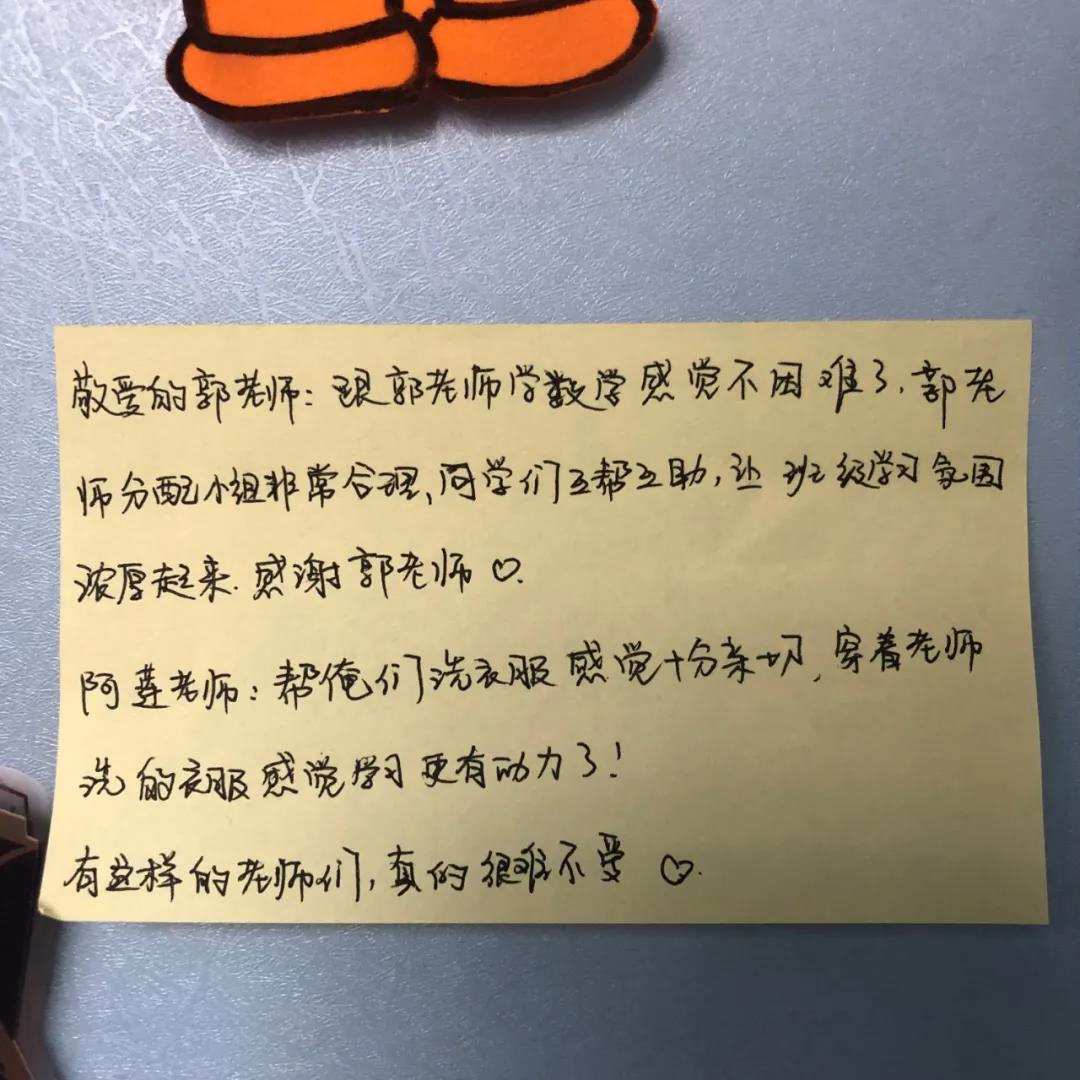 敬爱的郭老师：跟郭老师学数学感觉不困难了，郭老
师分配小组非常合理，同学们互帮互助，让班级学习氛围
浓厚起来.感谢郭老师♡.
阿莲老师：帮俺们洗衣服感觉十分亲切，穿着老师
洗的衣服感觉学习更有动力了！
有这样的老师们，真的很难不爱♡.